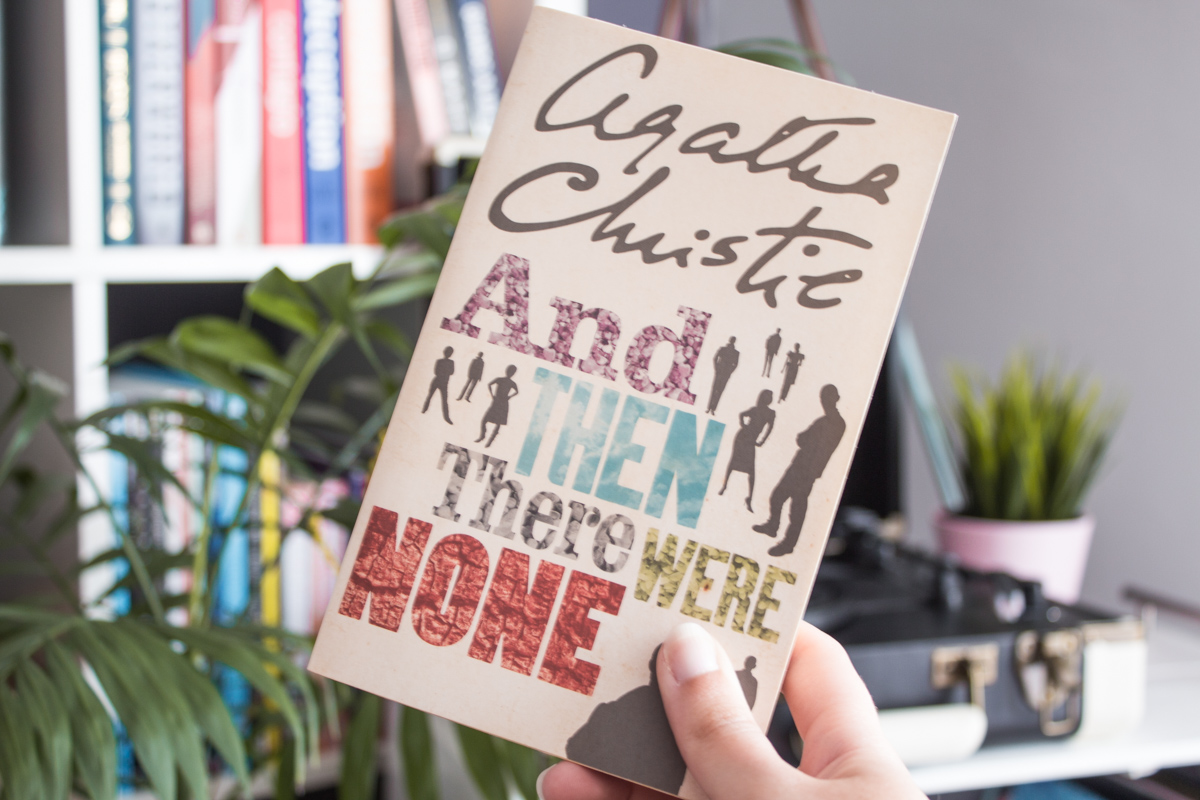 Agatha
Christie
And
THEN
There WERE
NONE